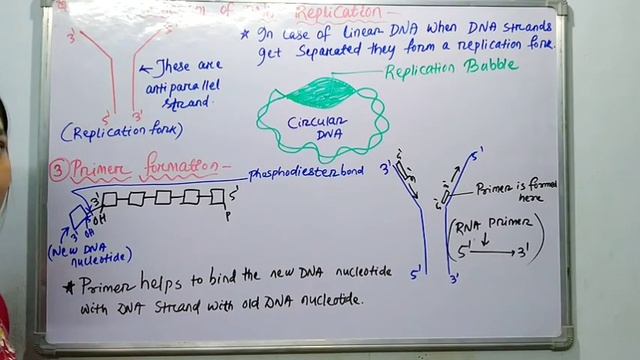 Replication
* In case of linear DNA when DNA strands
get separated they form a replication fork.
3'
← These are
antiparallel
strand.
5' 3'
(Replication fork)
Replication Bubble
Circular
DNA
③ Primer formation
phosphodiester bond
3' 5'
OH
OH
P
3'
(New DNA
nucleotide)
3' 5'
Primer is formed
here
(RNA primer)
5' → 3'
5' 3'
* Primer helps to bind the new DNA nucleotide
with DNA strand with old DNA nucleotide.